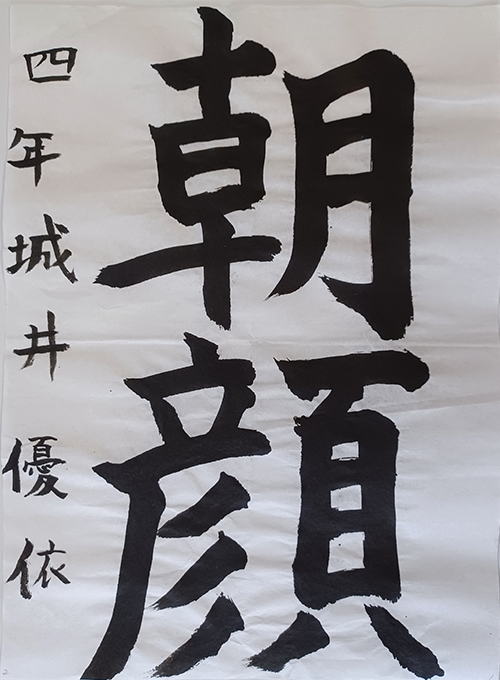 朝顔
四年城井優依